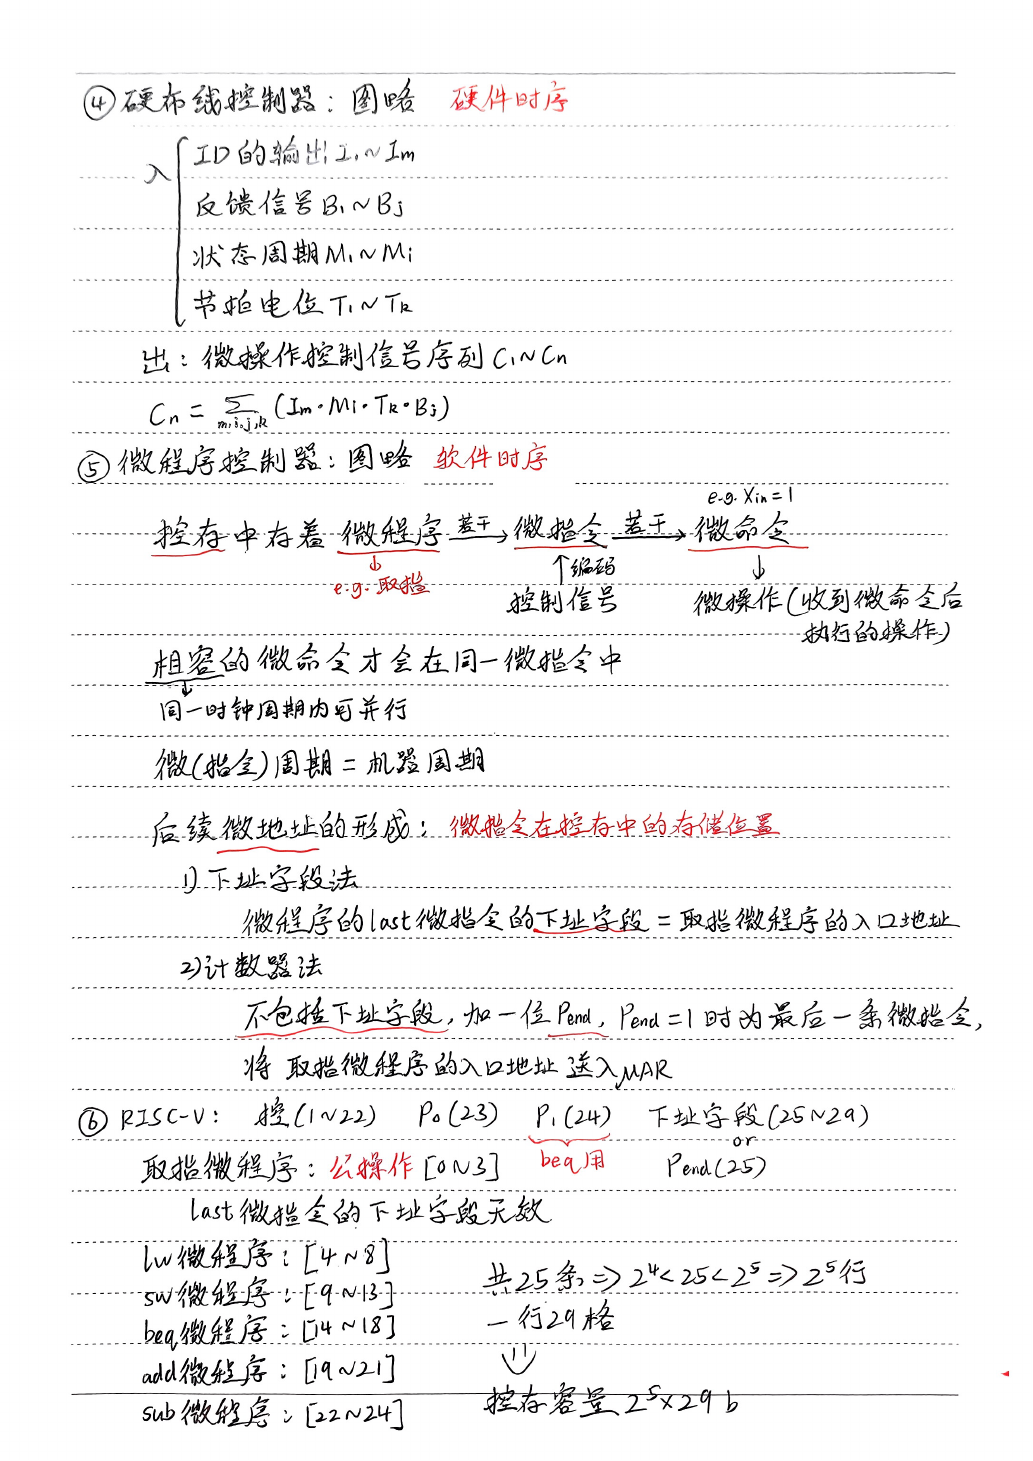 ④硬布线控制器：图略 硬件时序
入 ID的输出I₁~Im
反馈信号B₁~Bj
状态周期M₁~Mi
节拍电位T₁~Tk
出：微操作控制信号序列C₁~Cn
Cn = ∑m,i,j,k (Im·Mi·Tk·Bj)
⑤微程序控制器：图略 软件时序
e.g. Xin=1
控存中存着微程序 若干→ 微指令 若干→ 微命令
↓ ↑编码 ↓
e.g. 取指 控制信号 微操作(收到微命令后
执行的操作)
相容的微命令才会在同一微指令中
↓
同一时钟周期内可并行
微(指令)周期=机器周期
后续微地址的形成：微指令在控存中的存储位置
1)下址字段法
微程序的last微指令的下址字段=取指微程序的入口地址
2)计数器法
不包括下址字段，加一位Pend，Pend=1时为最后一条微指令，
将 取指微程序的入口地址 送入μAR
⑥RISC-V： 控(1~22) P₀(23) P₁(24) 下址字段(25~29)
or
取指微程序：公操作[0~3] beq用 Pend(25)
last微指令的下址字段无效
lw微程序：[4~8]
共25条⇒2⁴<25<2⁵⇒2⁵行
sw微程序：[9~13]
一行29格
beq微程序：[14~18]
add微程序：[19~21]
⇓
sub微程序：[22~24]
控存容量 2⁵×29 b